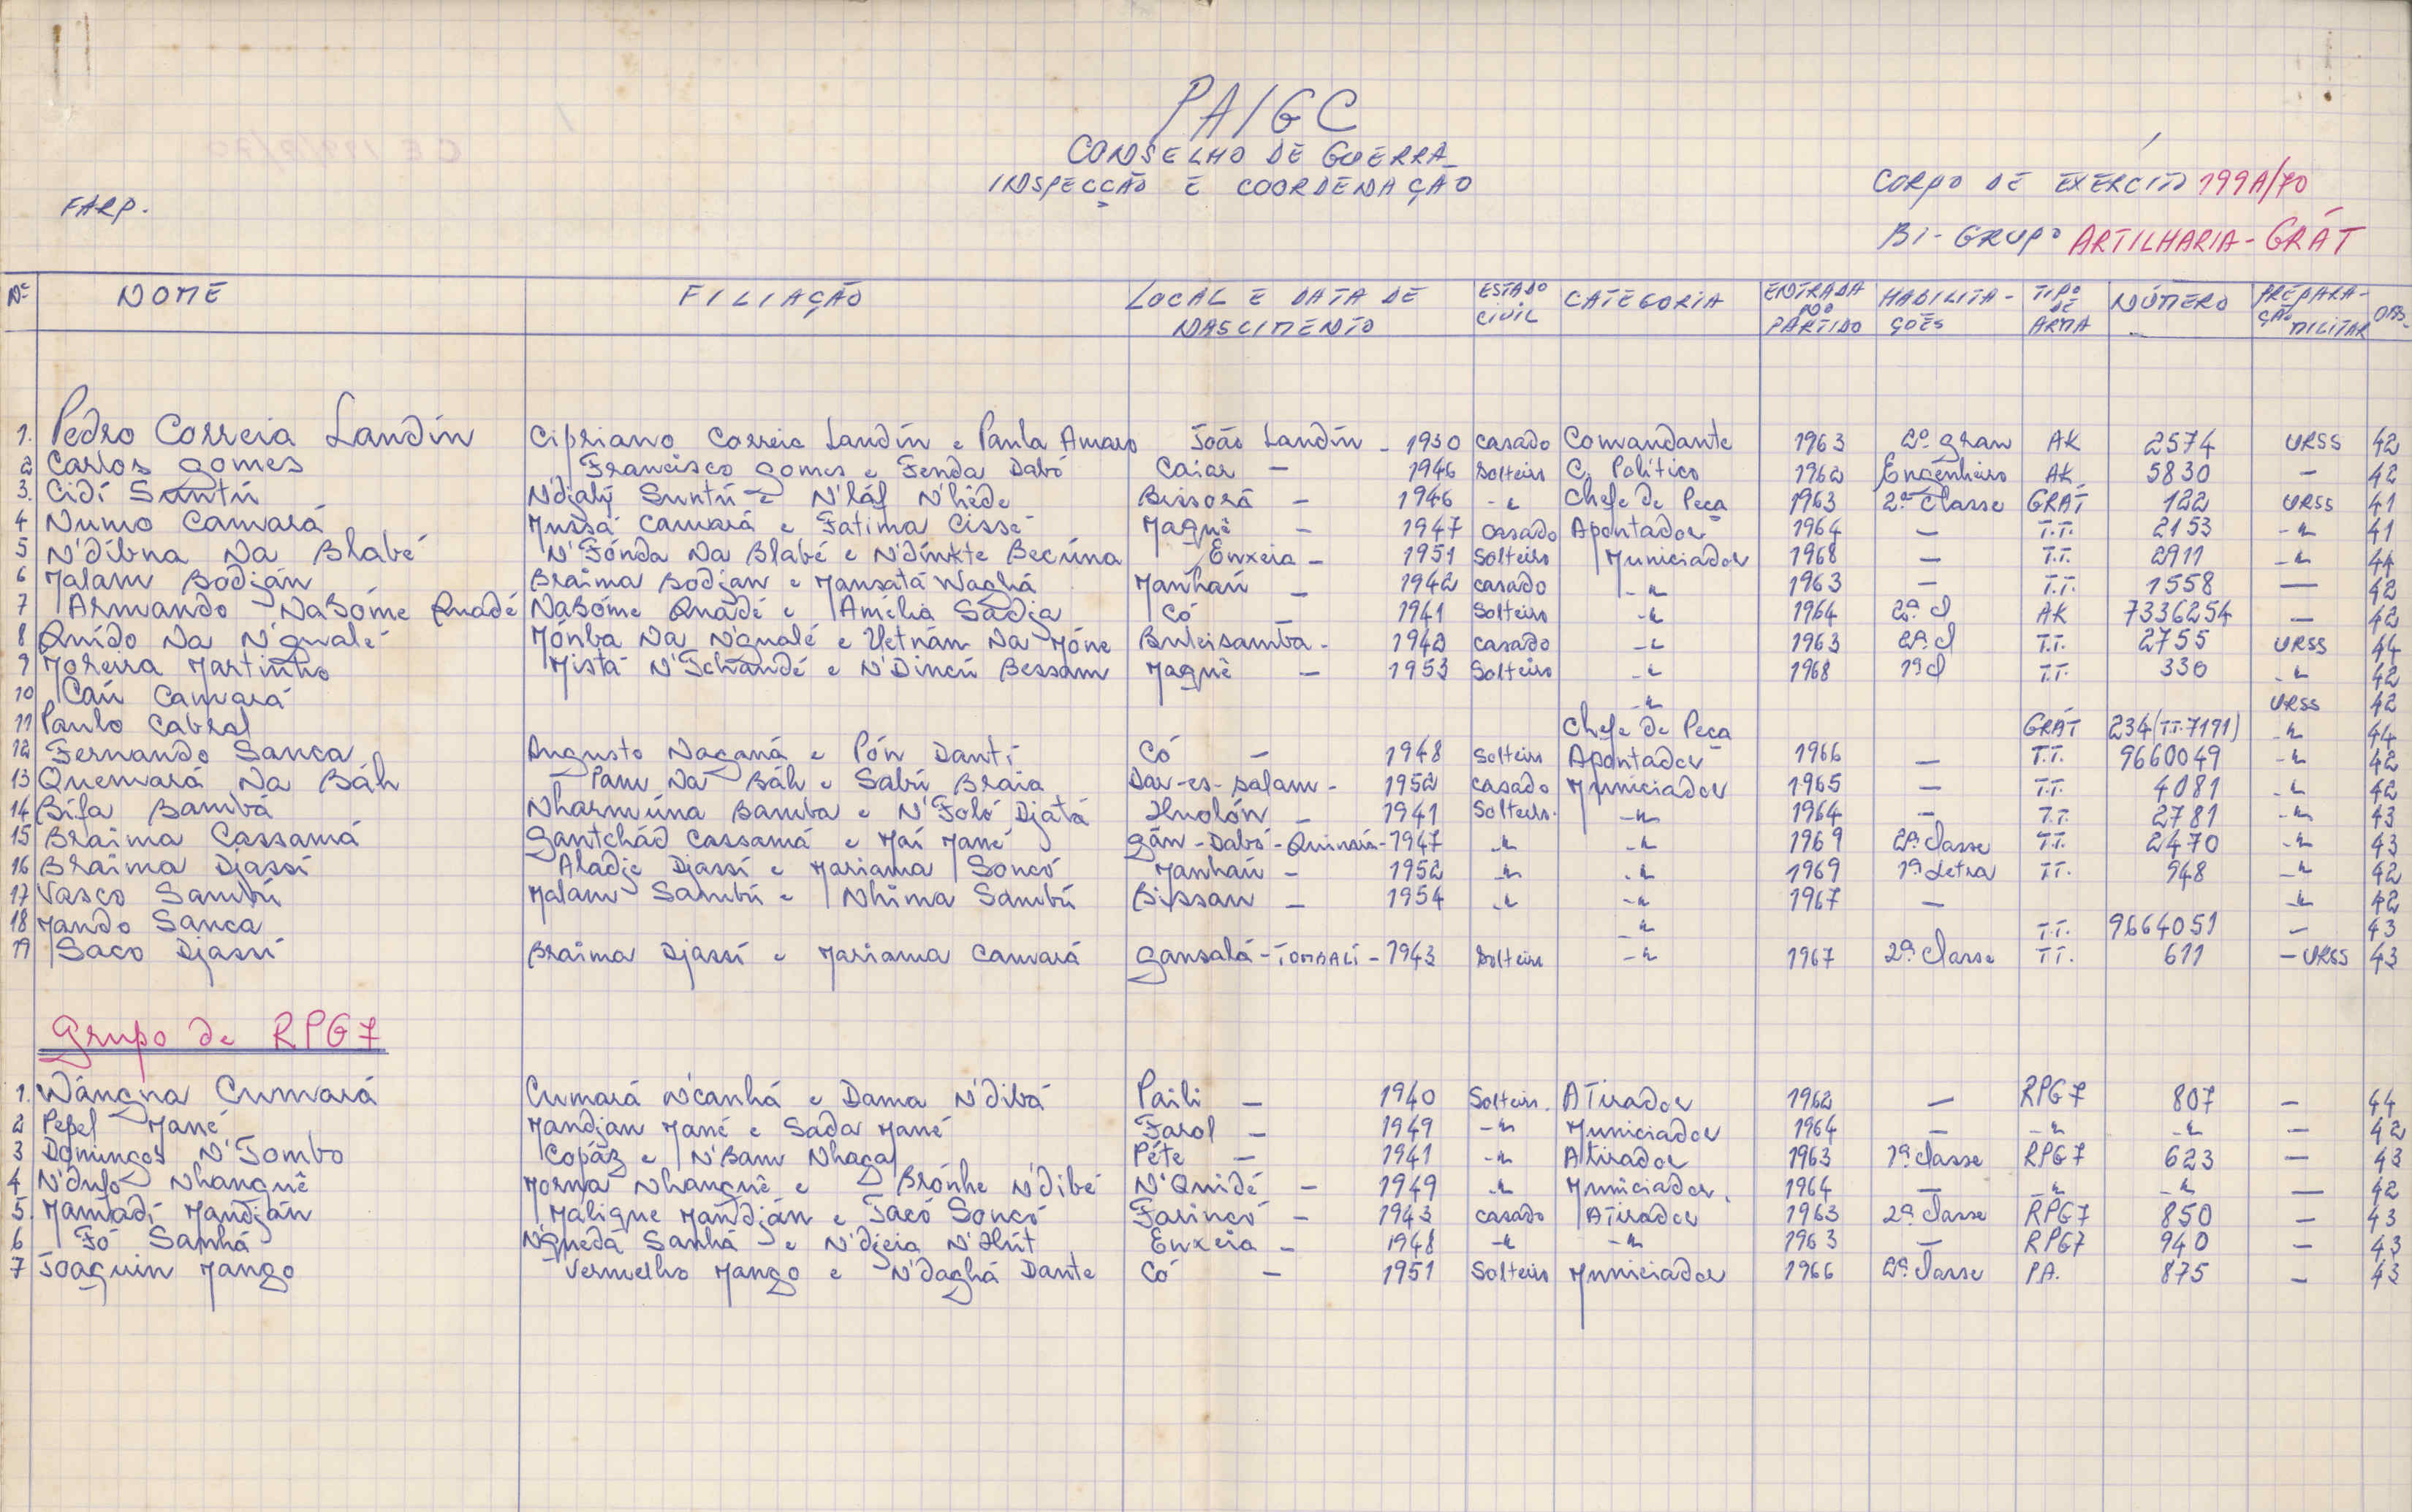 PAIGC
CONSELHO DE GUERRA
INSPECÇÃO E COORDENAÇÃO
FARP.
CORPO DE EXÉRCITO 199A/70
BI-GRUPO ARTILHARIA - GRÁT
Nº NOME FILIAÇÃO LOCAL E DATA DE NASCIMENTO ESTADO CIVIL CATEGORIA ENTRADA NO PARTIDO HABILITAÇÕES TIPO DE ARMA NÚMERO PREPARAÇÃO MILITAR OBS.
1. Pedro Correia Landín Cipriano Correia Landín e Paula Amaro João Landín - 1930 casado Comandante 1963 2º gran AK 2574 URSS 42
2 Carlos Gomes Francisco Gomes e Fenda Dabó Caiar - 1946 Solteiro C. Político 1962 Engenheiro AK 5830 - 42
3. Cidí Suntú N'djalý Suntú e N'láf N'héde Bissorá - 1946 -"- Chefe de Peça 1963 2ª Classe GRÁT 122 URSS 41
4 Numo Camará Mussá Camará e Fatima Cissé Maqué - 1947 casado Apontador 1964 - T.T. 2153 -"- 41
5 N'díbna Na Blabé N'Fónda Na Blabé e N'dímkte Becúna Enxeia - 1951 Solteiro Municiador 1968 - T.T. 2911 -"- 44
6 Malam Bodján Braima Bodjan e Mansatá Waghá Manhaú - 1942 casado -"- 1963 - T.T. 1558 - 42
7 Armando NaBóme Quadé NaBóme Quádé e Amélia Sadja Có - 1941 Solteiro -"- 1964 2ª cl AK 7336254 - 42
8 Quído Na N'gualé Mónba Na N'gualé e Uetnám Na Móne Buleisamba - 1942 casado -"- 1963 2ª cl T.T. 2755 URSS 44
9 Moreira Martinho Mistá N'Tchandé e N'Dincú Bessam Maqué - 1953 Solteiro -"- 1968 1ª cl T.T. 330 -"- 42
10 Caú Camará -"- URSS 42
11 Paulo Cabral Chefe de Peça GRÁT 234 (T.T. 7191) -"- 44
12 Fernando Sanca Augusto Naganá e Pón Dantí Có - 1948 Solteiro Apontador 1966 - T.T. 9660049 -"- 42
13 Quemará Na Báh Panu Na Báh e Sabú Braia Dar-es-salam - 1952 casado Municiador 1965 - T.T. 4081 -"- 42
14 Bífa Bambá Nharmúna Bamba e N'Foló Djatá - 1941 Solteiro. -"- 1964 - T.T. 2781 -"- 43
15 Braima Cassamá Gantchád Cassamá e Maí Mané Gãn-Dabó-Quinára - 1947 -"- -"- 1969 2ª Classe T.T. 2470 -"- 43
16 Braima Djassí Aladje Djassí e Mariama Soncó Manhaú - 1952 -"- -"- 1969 1ª Letra T.T. 948 -"- 42
17 Vasco Sambú Malam Sambú e Nhima Sambú Bissau - 1954 -"- -"- 1967 - -"- 42
18 Mando Sanca -"- T.T. 9664051 - 43
19 Saco Djassí Braima Djassí e Mariama Camará Gansalá - TOMBALÍ - 1943 Solteiro -"- 1967 2ª Classe T.T. 611 - URSS 43
Grupo de RPG7
1. Wángna Cumará Cumará N'canhá e Dama N'dibá Paili - 1940 Solteiro. ATirador 1962 - RPG7 807 - 44
2 Pepel Mané Mandjan Mané e Sada Mané Farol - 1949 -"- Municiador 1964 - -"- -"- - 42
3 Domingos N'Tombo Copáz e N'Bam Nhaga Péte - 1941 -"- Atirador 1963 1ª classe RPG7 623 - 43
4 N'dufo Nhanquê Morna Nhanquê e Brónhe N'dibé N'Quidé - 1949 -"- Municiador. 1964 - -"- -"- - 42
5. Mamadí Mandján Malique Mandján e Tacó Soncó Farincó - 1943 casado ATirador 1963 2ª Classe RPG7 850 - 43
6 Fó Sanhá N'gueda Sanhá e N'djeia Enxeia - 1948 -"- -"- 1963 - RPG7 940 - 43
7 Joaquin Mango Vermelho Mango e N'daghá Dante Có - 1951 Solteiro Municiador 1966 2ª Classe PA. 875 - 43